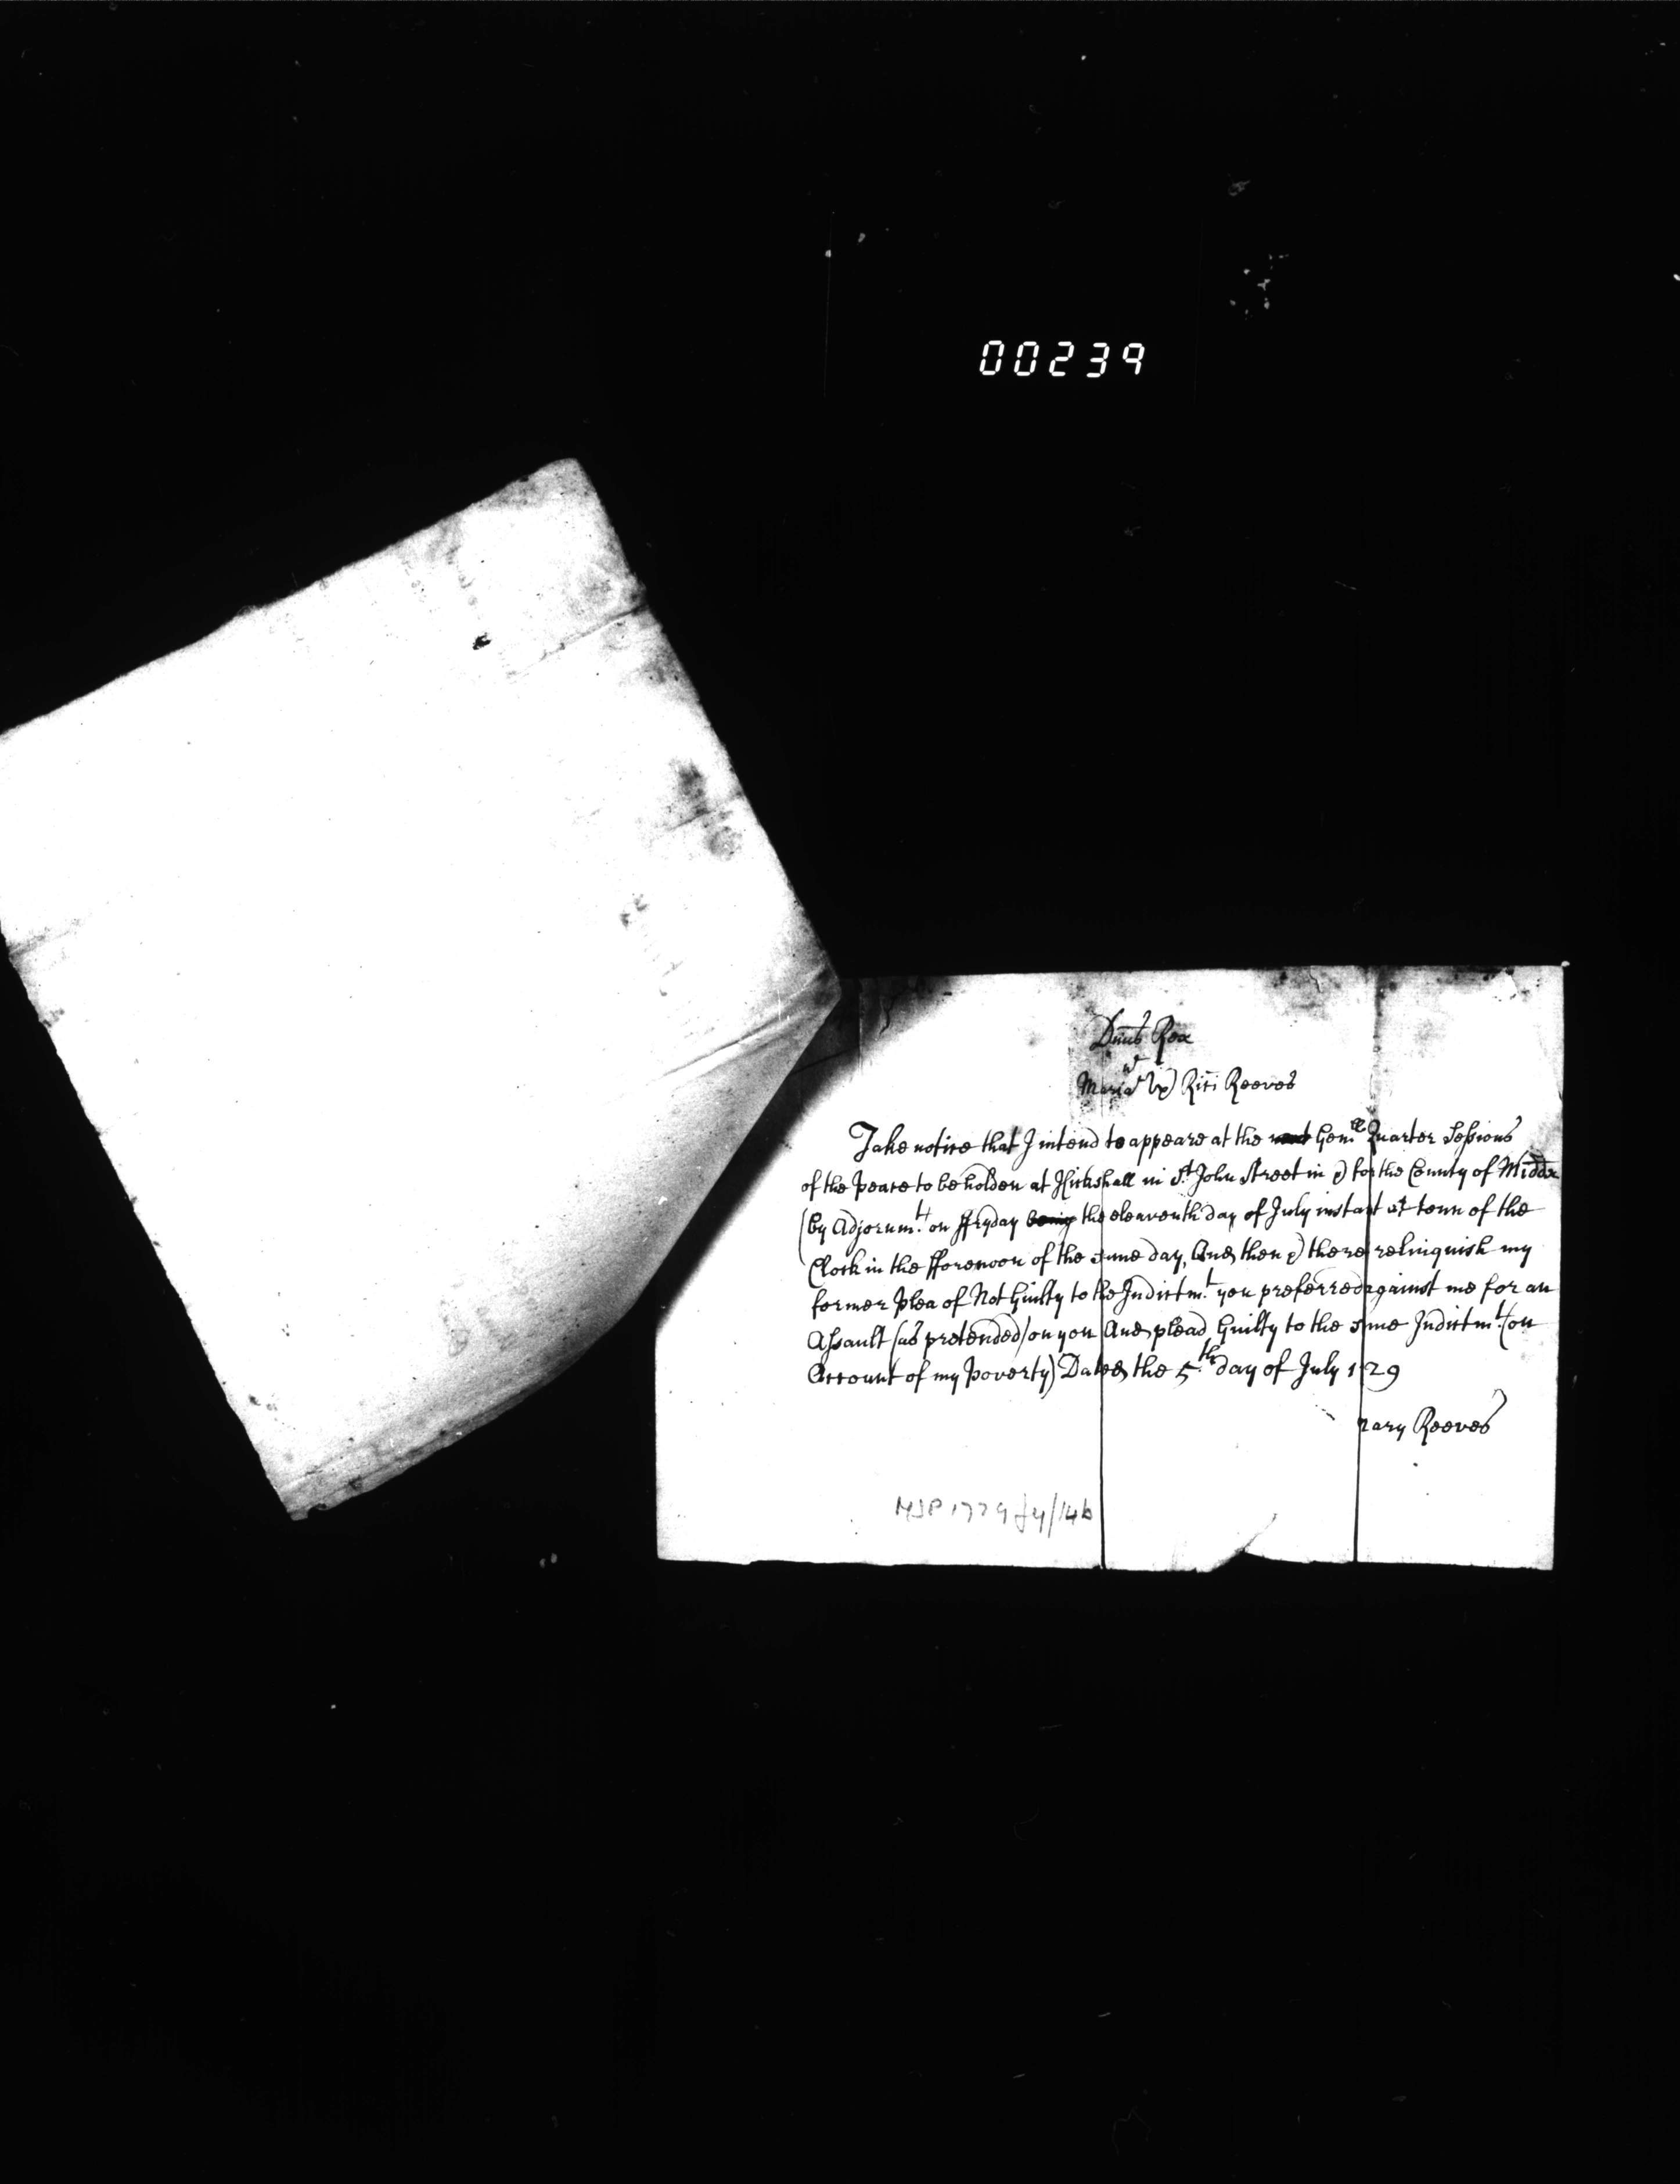 00239
Dnus Rex
v
Maria Ux Rici Reeves
Take notice that I intend to appeare at the next Genll Quarter Sessions
of the peace to be holden at Hickshall in St. John Street in & for the County of Middx
(by Adjornmt. on ffryday being the eleaventh day of July instant at tenn of the
Clock in the fforenoon of the same day, And then & there relinquish my
former plea of Not Guilty to the Indictmt. you preferred against me for an
Assault (as pretended) on you And plead Guilty to the same Indictmt. (on
Account of my poverty) Dated the 5th. day of July 1729
Mary Reeves
MJSP 1729 Jy/14b